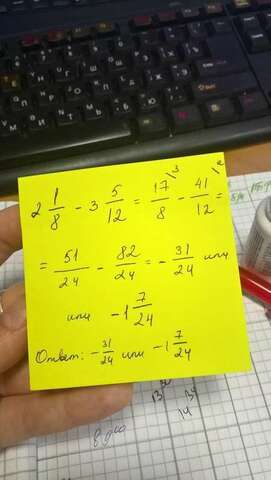 2 1/8 - 3 5/12 = 17/8 \3 - 41/12 \2 =
= 51/24 - 82/24 = - 31/24 или
или -1 7/24
Ответ: - 31/24 или -1 7/24